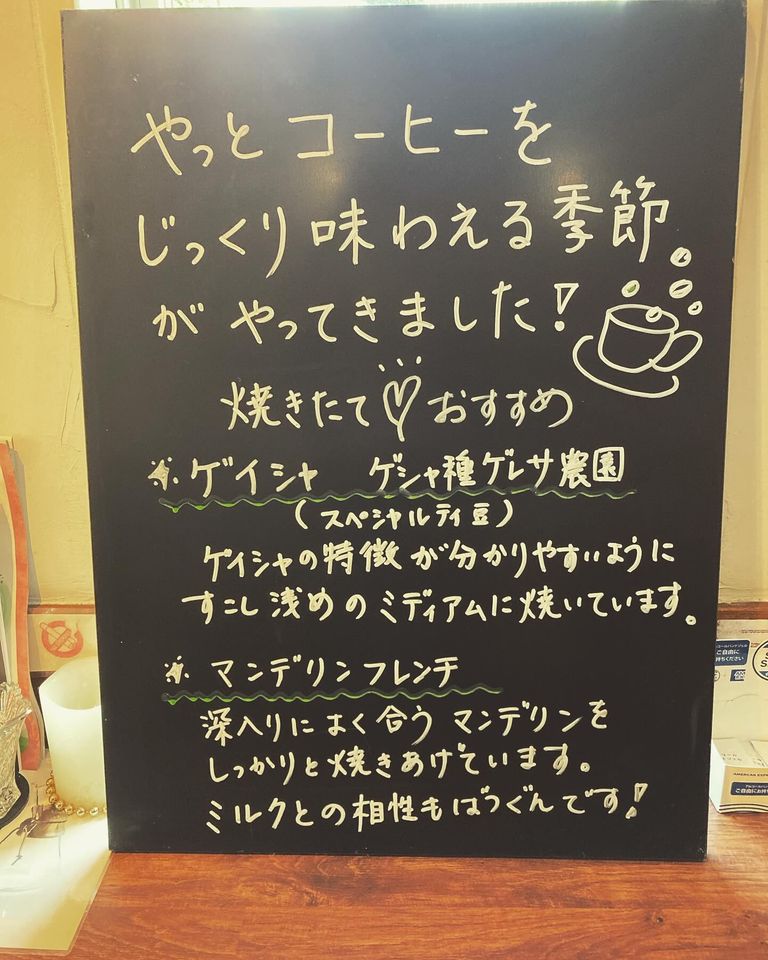 やっとコーヒーを
じっくり味わえる季節
がやってきました!
焼きたて♡おすすめ
ゲイシャ ゲシャ種ゲレサ農園
(スペシャルティ豆)
ゲイシャの特徴が分かりやすいように
すこし浅めのミディアムに焼いています。
マンデリンフレンチ
深入りによく合うマンデリンを
しっかりと焼きあげています。
ミルクとの相性もばつぐんです!
アルコールハンドジェル
ご自由に
お持ちください
AMERICAN EXPRESS